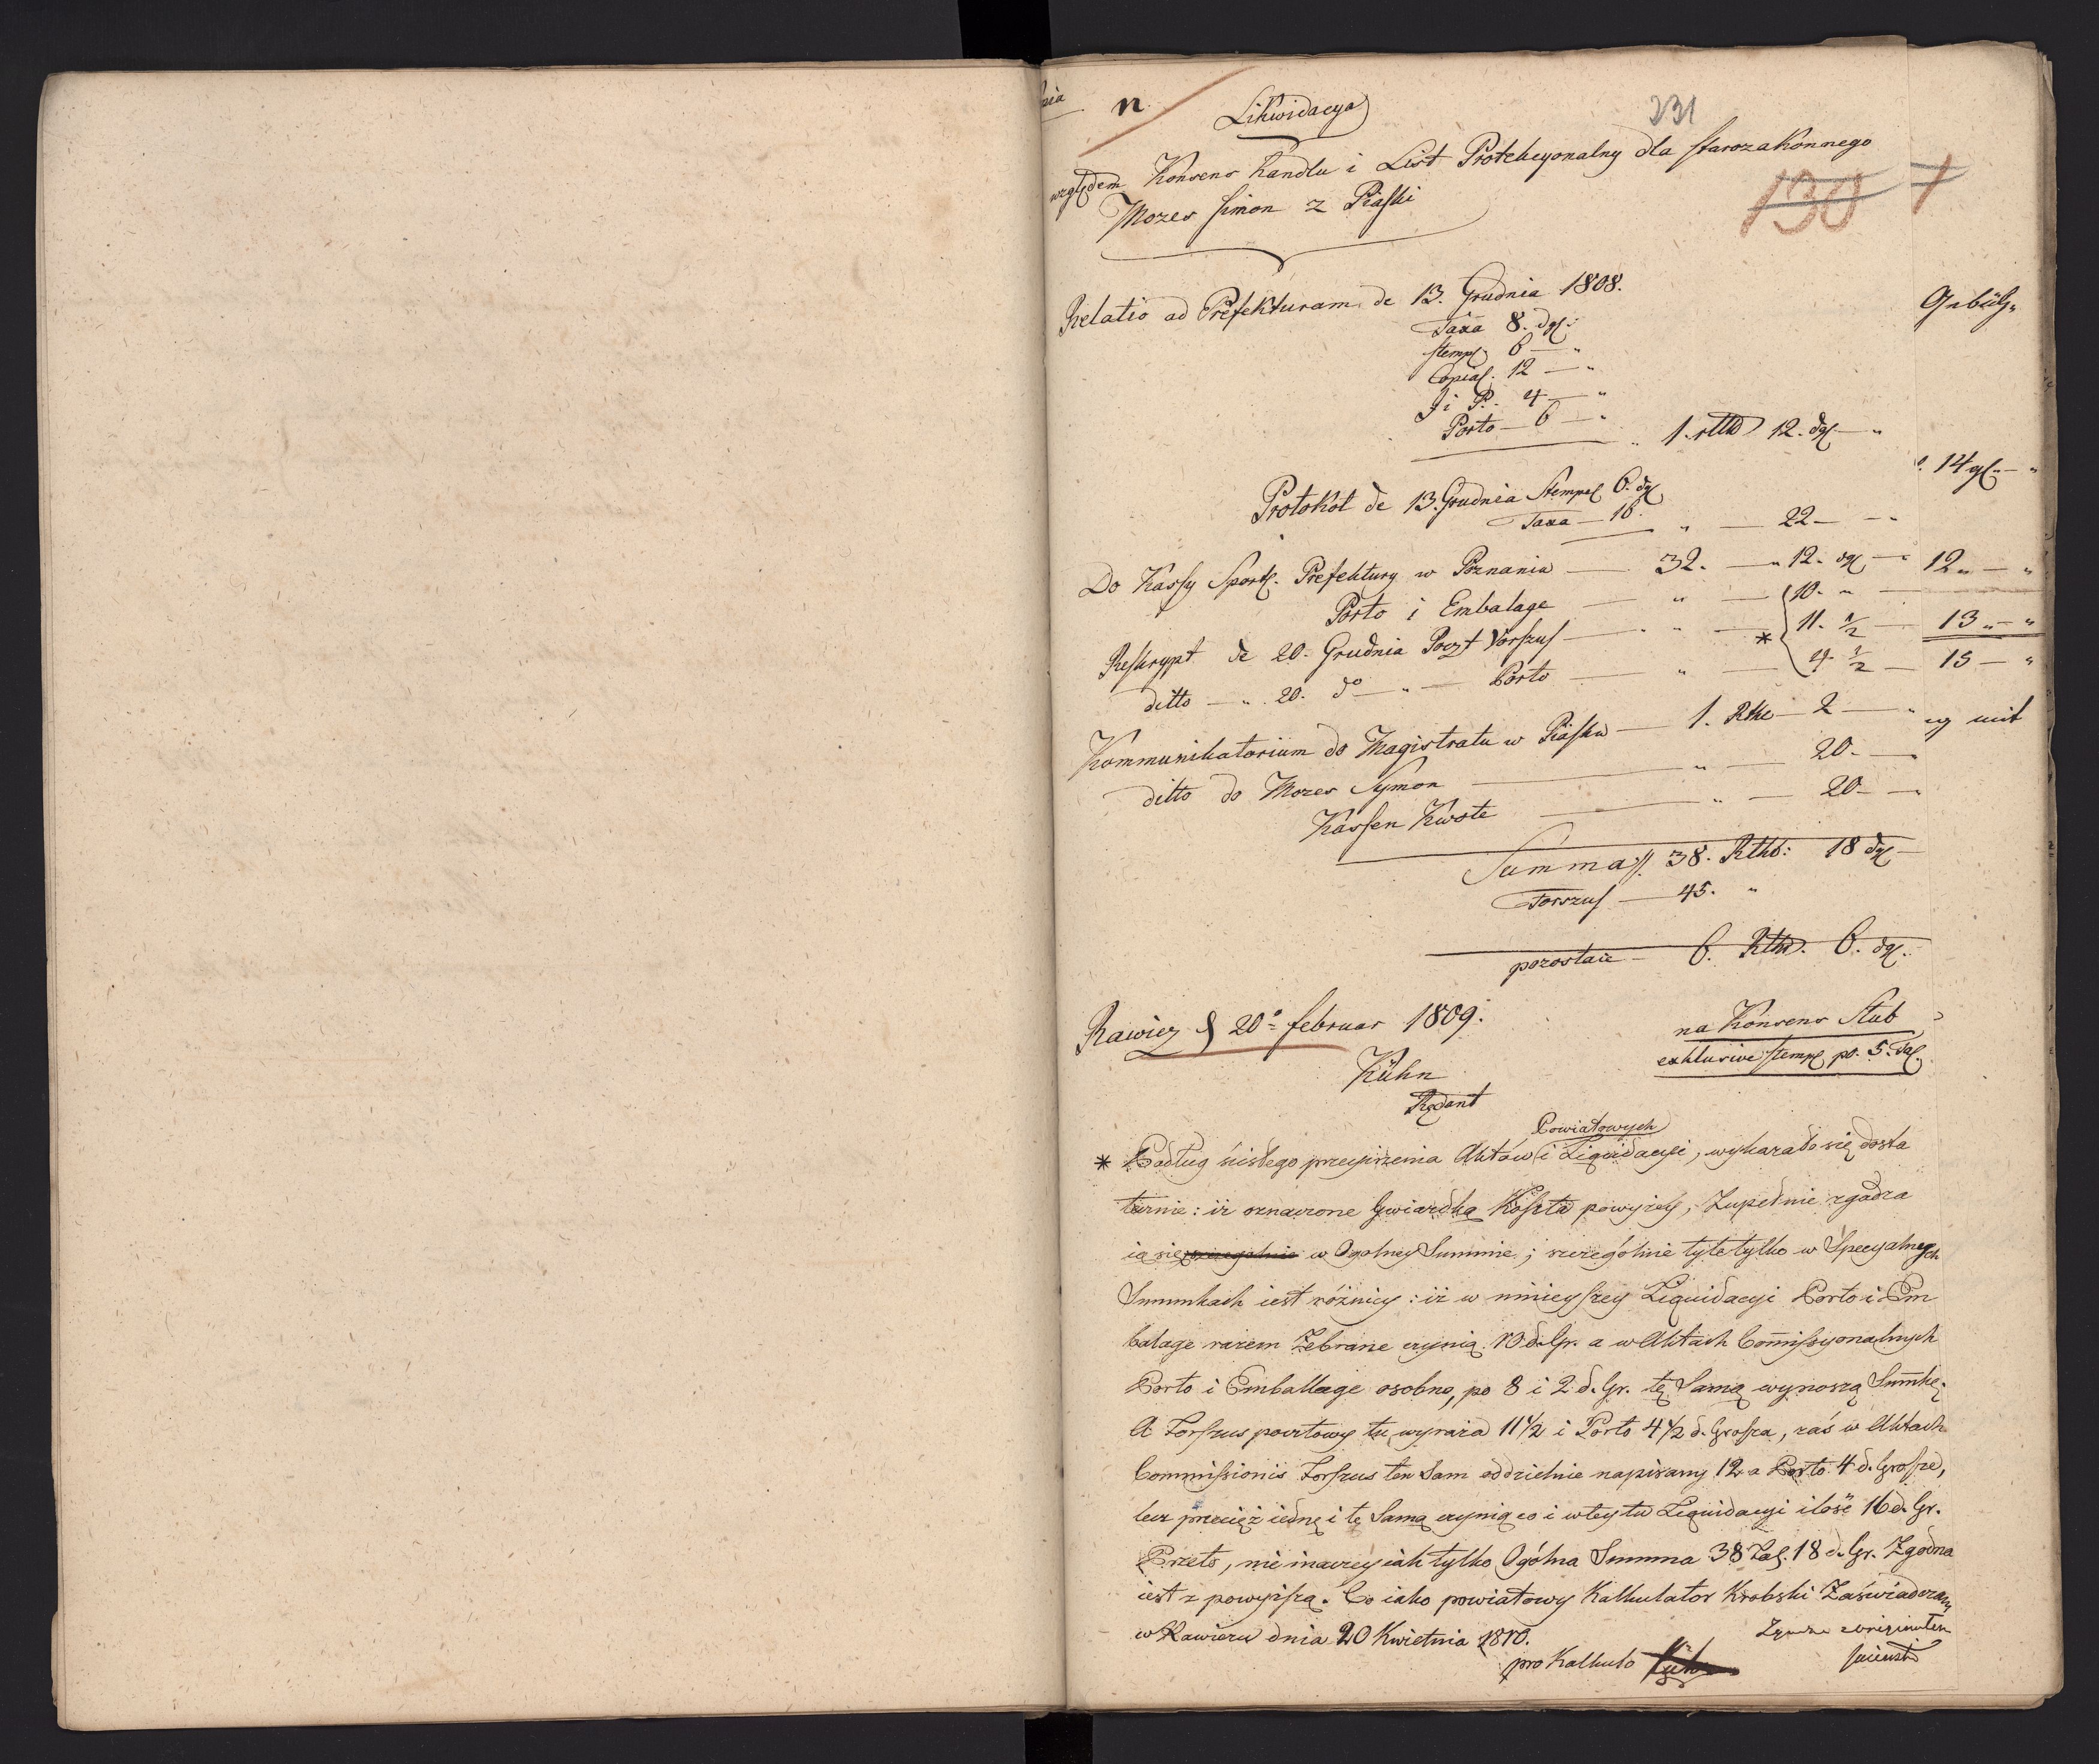 n
Likwidacya
231
względem Konsens handlu i List Protekcyonalny dla starozakonnego
130
Mozes Simon z Piaski
Relatio ad Prefekturam de 13. Grudnia 1808.
Taxa 8. dgl:
stempl 6 — "
Copial. 12 — "
J i P. 4 — "
Porto — 6 — "
1. rtlr 12. dgl. — "
14 gl. — "
Protokół de 13. Grudnia Stempel 6. dgl
Taxa — 16. " — 22 — "
Do Kassy Sportl. Prefektury w Poznaniu — 32. — " 12. dgl — "
12 " — "
Porto i Embalage — " — 10. "
Reskrypt de 20. Grudnia Poczt Vorszus — " — * 11. 1/2 —
13 " — "
ditto — " 20. do — " — Porto — " — 4. 1/2 —
15 — "
Kommunikatorium do Magistratu w Piasku — 1. Rthl — 2 — "
mit
ditto do Mozes Symon — " — 20. —
Kassen Kwote — " — 20 — "
Summa //. 38. Rthl: 18 dgl —
Forszus — 45. "
pozostaie — 6. Rthl. 6. dgl.
Rawicz d 20o februar 1809.
na Konsens Stub
exklusive stempl po. 5. Tal.
Kühn
Rędant
Powiatowych
* Podług ścisłego przeyirzenia Aktów i Liquidacyi, wykazało się dosta
tecznie: iż oznaczone Gwiazdką Koszta powyżey, Zupełnie zgadza
ią się szczegolnie w Ogolney Summie; szczególnie tyle tylko w Specyalnych
Summkach iest różnicy: iż w ninieyszey Liquidacyi Porto i Em
balage razem Zebrane czynią 10 d. Gr. a w Aktach Commissyonalnych
Porto i Emballage osobno, po 8 i 2 d. Gr. tę Samą wynoszą Summkę.
A Forszus pocztowy tu wyraża 11 1/2 i Porto 4 1/2 d. Grosza, zaś w Aktach
Commissionis Forszus ten Sam oddzielnie napisany 12 a Porto 4 d. Grosze,
lecz przecięż iednę i tę Samą czynią co i w tey tu Liquidacyi ilość 16 d. Gr.
Przeto, nie inaczey iak tylko Ogólna Summa 38 Tal. 18 d. Gr. Zgodna
iest z powyższą. Co iako powiatowy Kalkulator Krobski Zaświadczam
w Rawiczu dnia 20 Kwietnia 1810.
pro Kalkulo